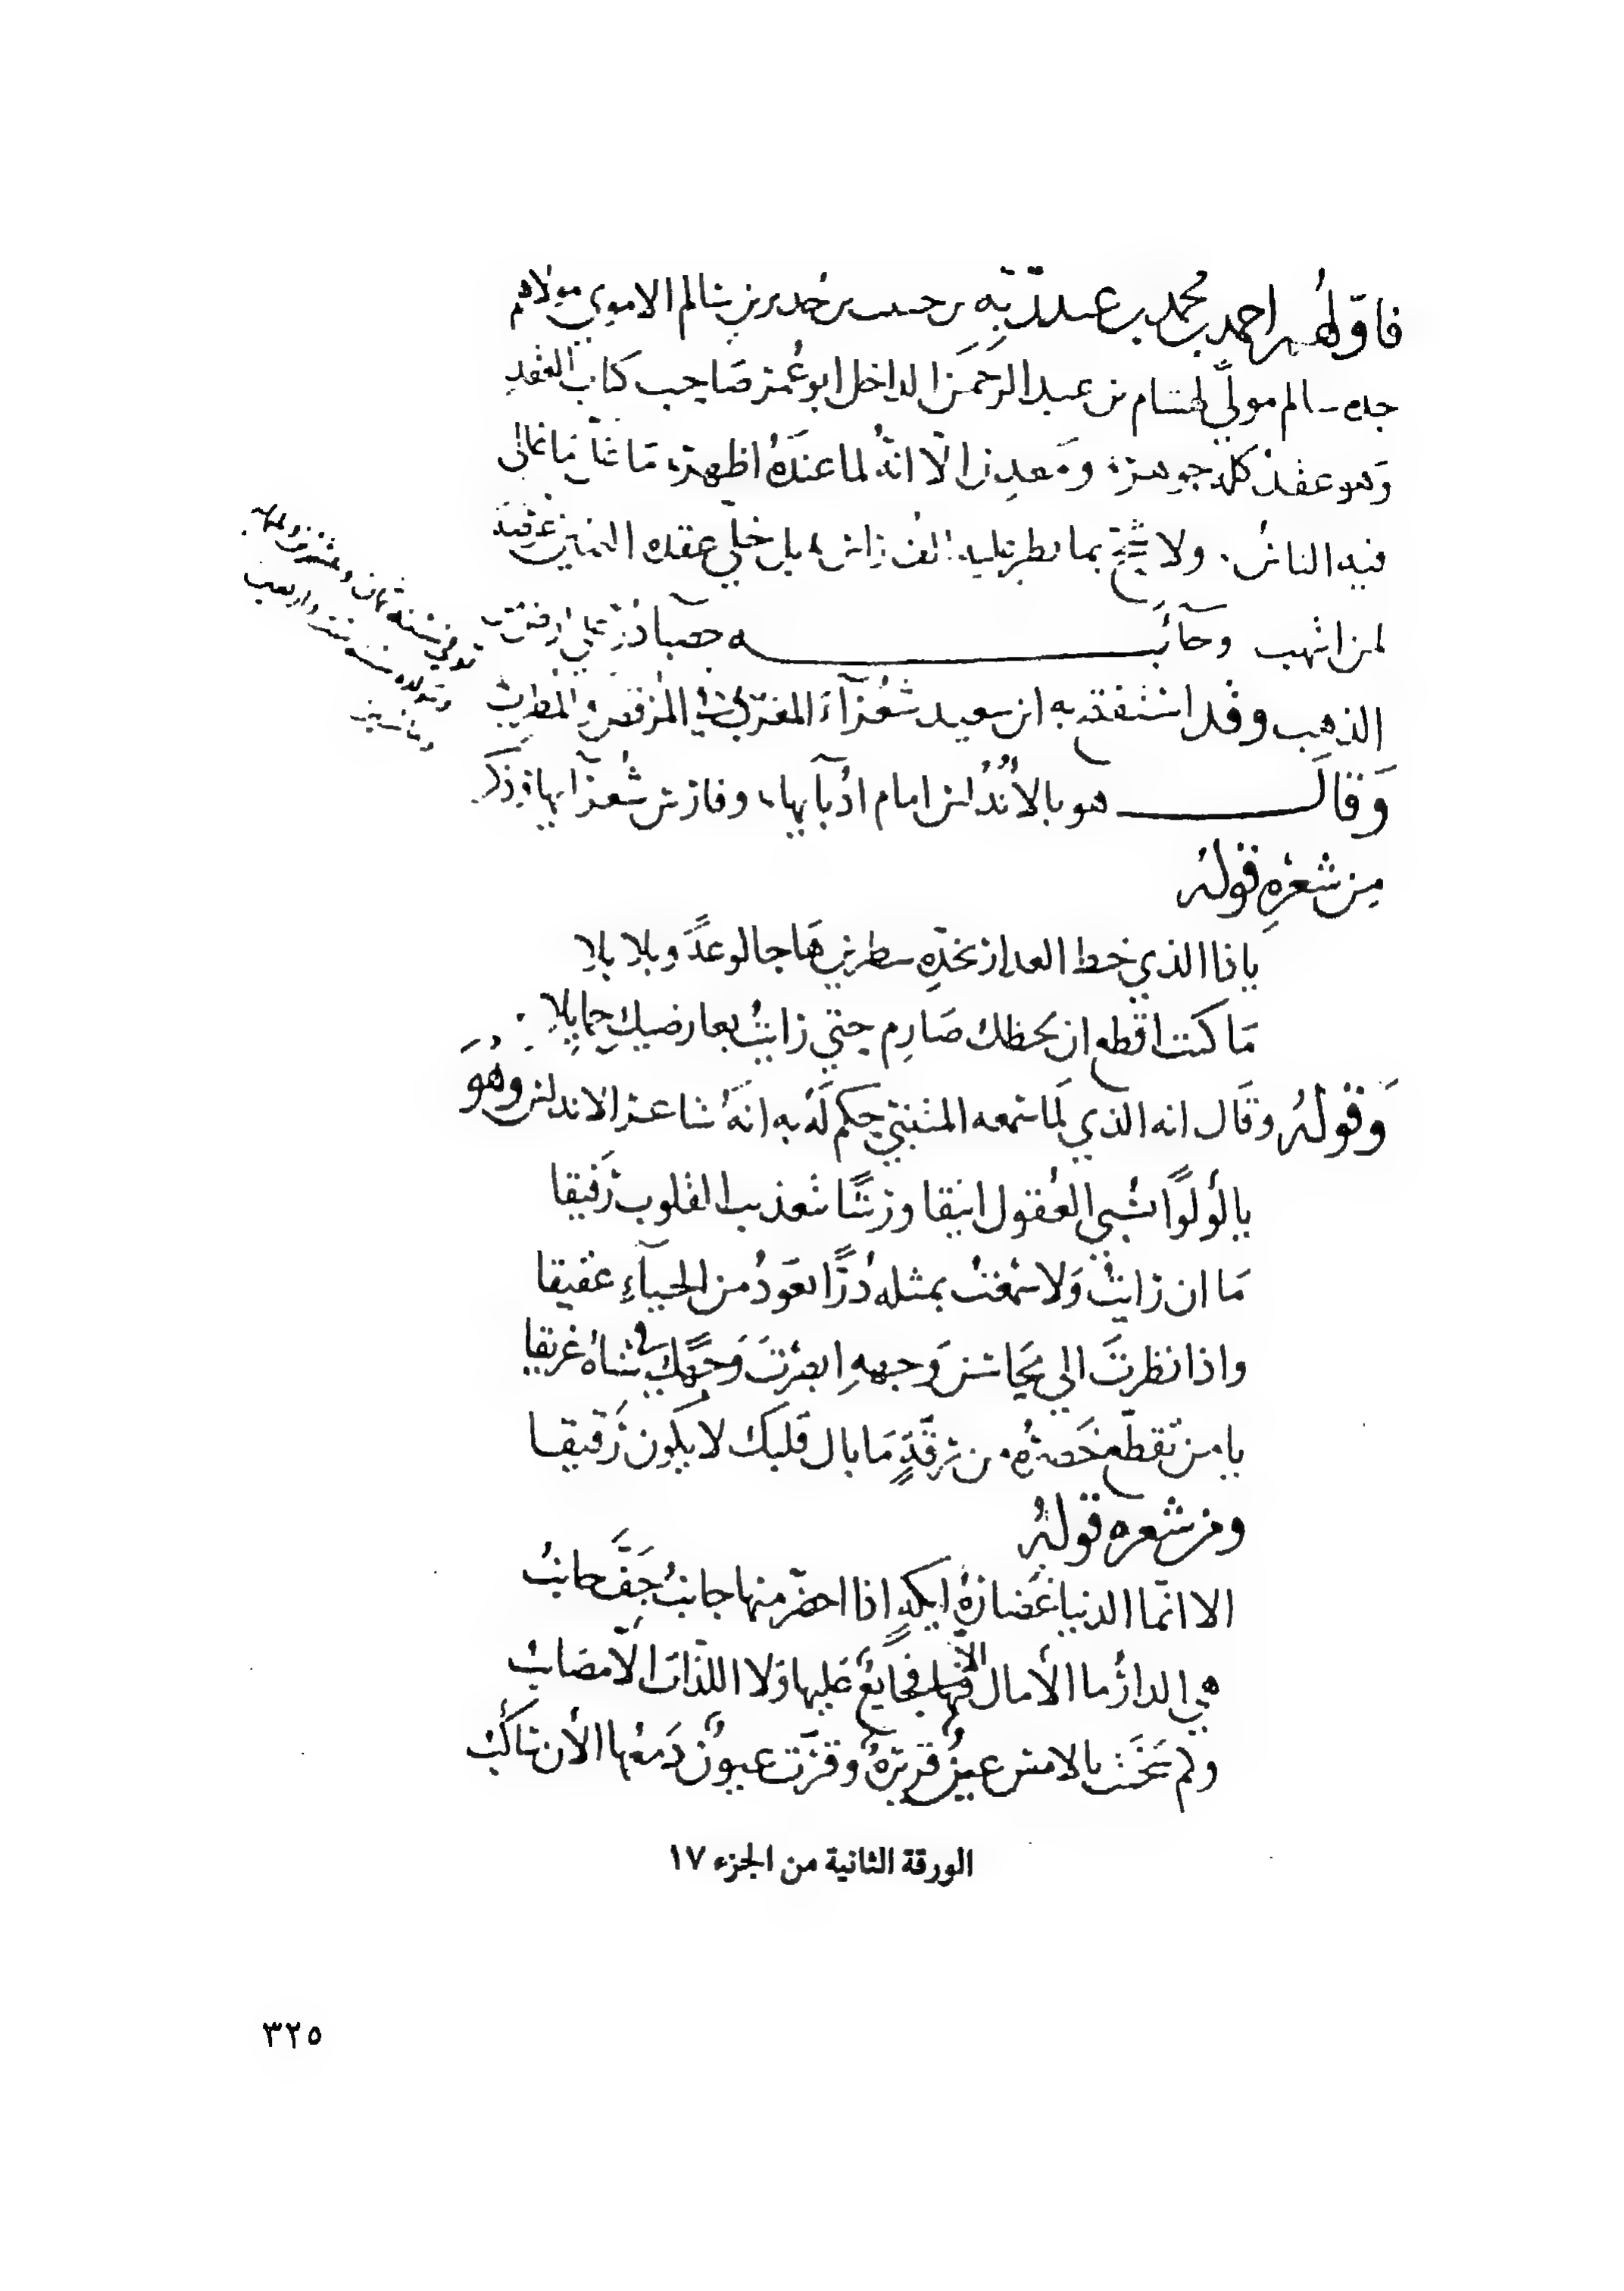 فاولهم احمد بن محمد بن عبد ربه بن حبيب بن حدير بن سالم الاموي مولاهم
جده سالم مولى لهشام بن عبد الرحمن الداخل ابو عمر صاحب كتاب العقد
وهو عقد كله جوهر، ومعدن الا انه لما عنده اظهر، ما شا ما غالى
فيه الناس. ولا بما بطرف الف راس، بل خلى عقده الثمين عرفه
لمن انتهب وحآئبه حصبا در على ارض من
الذهب وقد استفتح به ابن سعيد شعرآء المغرب في المرقص والمطرب
وقال هو بالاندلس امام ادبآيها، وفارس شعرآيها، وذكر
من شعره قوله
يا ذا الذي خط العذار بخده سطرين هاجا لوعة وبلابلا
ما كنت اقطع ان لحظك صارم حتى رايت بعارضيك حمايلا
وقوله وقال انه الذي لما سمعه المتنبي حكم له به انه شاعر الاندلس وهو
يا لؤلؤا يسبي العقول انيقا ورشا بتعذيب القلوب رفيقا
ما ان رايت ولا سمعت بمثله درا يعود من الحيآء عقيقا
واذا نظرت الى محاسن وجهه ابصرت وجهك في سناه غريقا
يا من تقطع خصره من رقة ما بال قلبك لا يكون رقيقا
ومن شعره قوله
الا انما الدنيا غضارة ايكة اذا اخضر منها جانب جف جانب
هي الدار ما الآمال الا فجايع عليها ولا اللذات الا مصايب
وكم سخنت بالامس عين قريرة وقرت عيون دمعها الآن ساكب
توفي سنة ثمان وعشرين وثلثمايه
ومولده سنة ست واربعين
ومايتين
الورقة الثانية من الجزء ١٧
٣٢٥